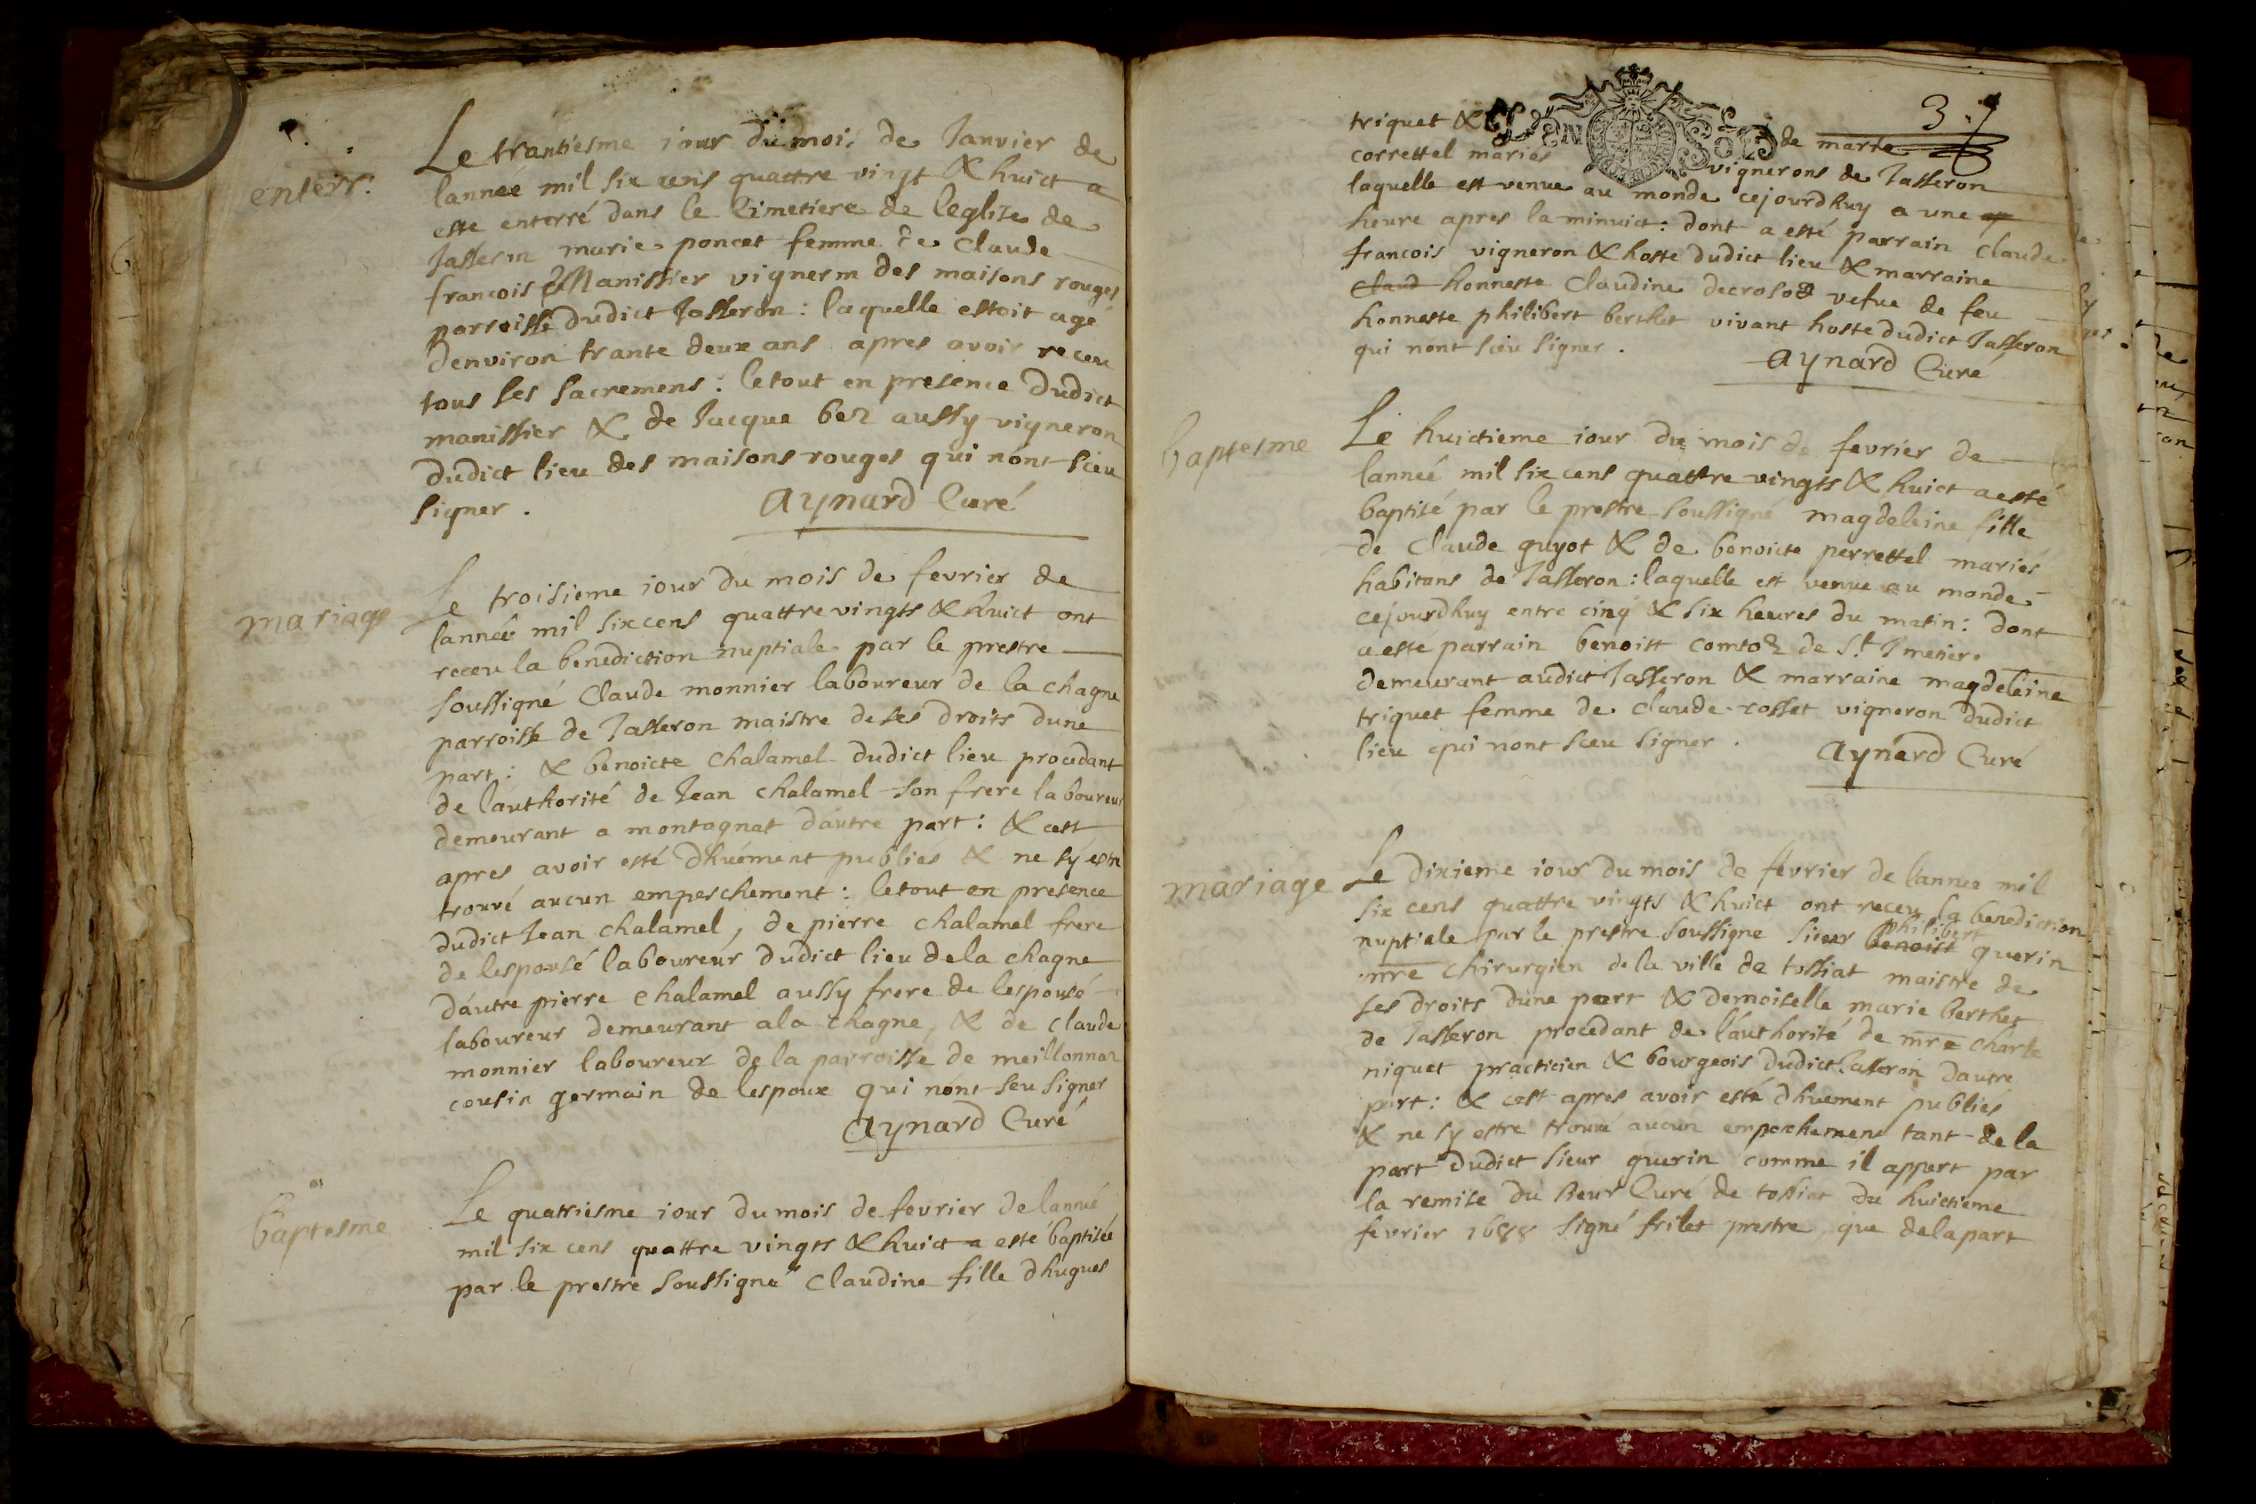 enterr.
Le trantiesme iour du mois de Janvier de
lanneé mil six cens quattre vingt & huict a
este enterré dans le Cimetiere de leglize de
Jasseron marie poncet femme de Claude
francois Manissier vigneron des maisons rouges
parroisse dudict Jasseron : laquelle estoit agé
denviron trante deux ans apres avoir receu
tous ses sacremens : le tout en presence dudict
manissier & de Jacque bez aussy vigneron
dudict lieu des maisons rouges qui nont sceu
signer . Aynard Curé
mariage
Le troisieme iour du mois de fevrier de
lanneé mil six cens quattre vingts & huict ont
receu la benediction nuptiale par le prestre
soussigné Claude monnier laboureur de la chagne
parroisse de Jasseron maistre de ses droits dune
part : & benoicte chalamel dudict lieu procedant
de lauthorité de Jean chalamel son frere laboureur
demeurant a montagnat dautre part : & cest
apres avoir esté dhuément publiés & ne sy estre
trouvé aucun empeschement : le tout en presence
dudict Jean chalamel, de pierre chalamel frere
de lespousé laboureur dudict lieu de la chagne
dautre pierre chalamel aussy frere de lespousé
laboureur demeurant a la chagne, & de claude
monnier laboureur de la parroisse de meillonnaz
cousin germain de lespoux qui nont seu signer
Aynard Curé
baptesme
Le quatriesme iour du mois de fevrier de lanné
mil six cens quattre vingts & huict a esté baptisée
par le prestre soussigné Claudine fille dhugues
3.
triquet & de marie
correttel mariés vignerons de Jasseron
laquelle est venue au monde cejourdhuy a une
heure apres la minuict : dont a esté parrain Claude
francois vigneron & hoste dudict lieu & marraine
claud honneste Claudine decroso vefue de feu
honneste philibert berthet vivant hoste dudict Jasseron
qui nont sceu signer .
Aynard Curé
baptesme
Le huictieme iour du mois de fevrier de
lanneé mil six cens quattre vingts & huict a esté
baptisé par le prestre soussigné magdeleine fille
de Claude guyot & de benoicte perrettel mariés
habitans de Jasseron : laquelle est venue au monde
cejourdhuy entre cinq & six heures du matin : dont
a esté parrain benoist comtoz de St Imetier
demeurant audict Jasseron & marraine magdeleine
triquet femme de claude rosset vigneron dudict
lieu qui nont sceu signer .
Aynard Curé
mariage
Le dixieme iour du mois de fevrier de lannee mil
six cens quattre vingts & huict ont receu la benediction
philibert
nuptiale par le prestre soussigne sieur benoist guerin
mre chirurgien de la ville de tossiat maistre de
ses droits dune part & demoiselle marie berthet
de Jasseron procedant de lauthorité de mre charle
niquet practicien & bourgeois dudict Jasseron dautre
part : & cest apres avoir esté dhuement publiés
& ne sy estre trouvé aucun empechement tant de la
part dudict sieur guerin comme il appert par
la remise du sieur Curé de tossiat du huictieme
fevrier 1688 signé frilet prestre que de la part